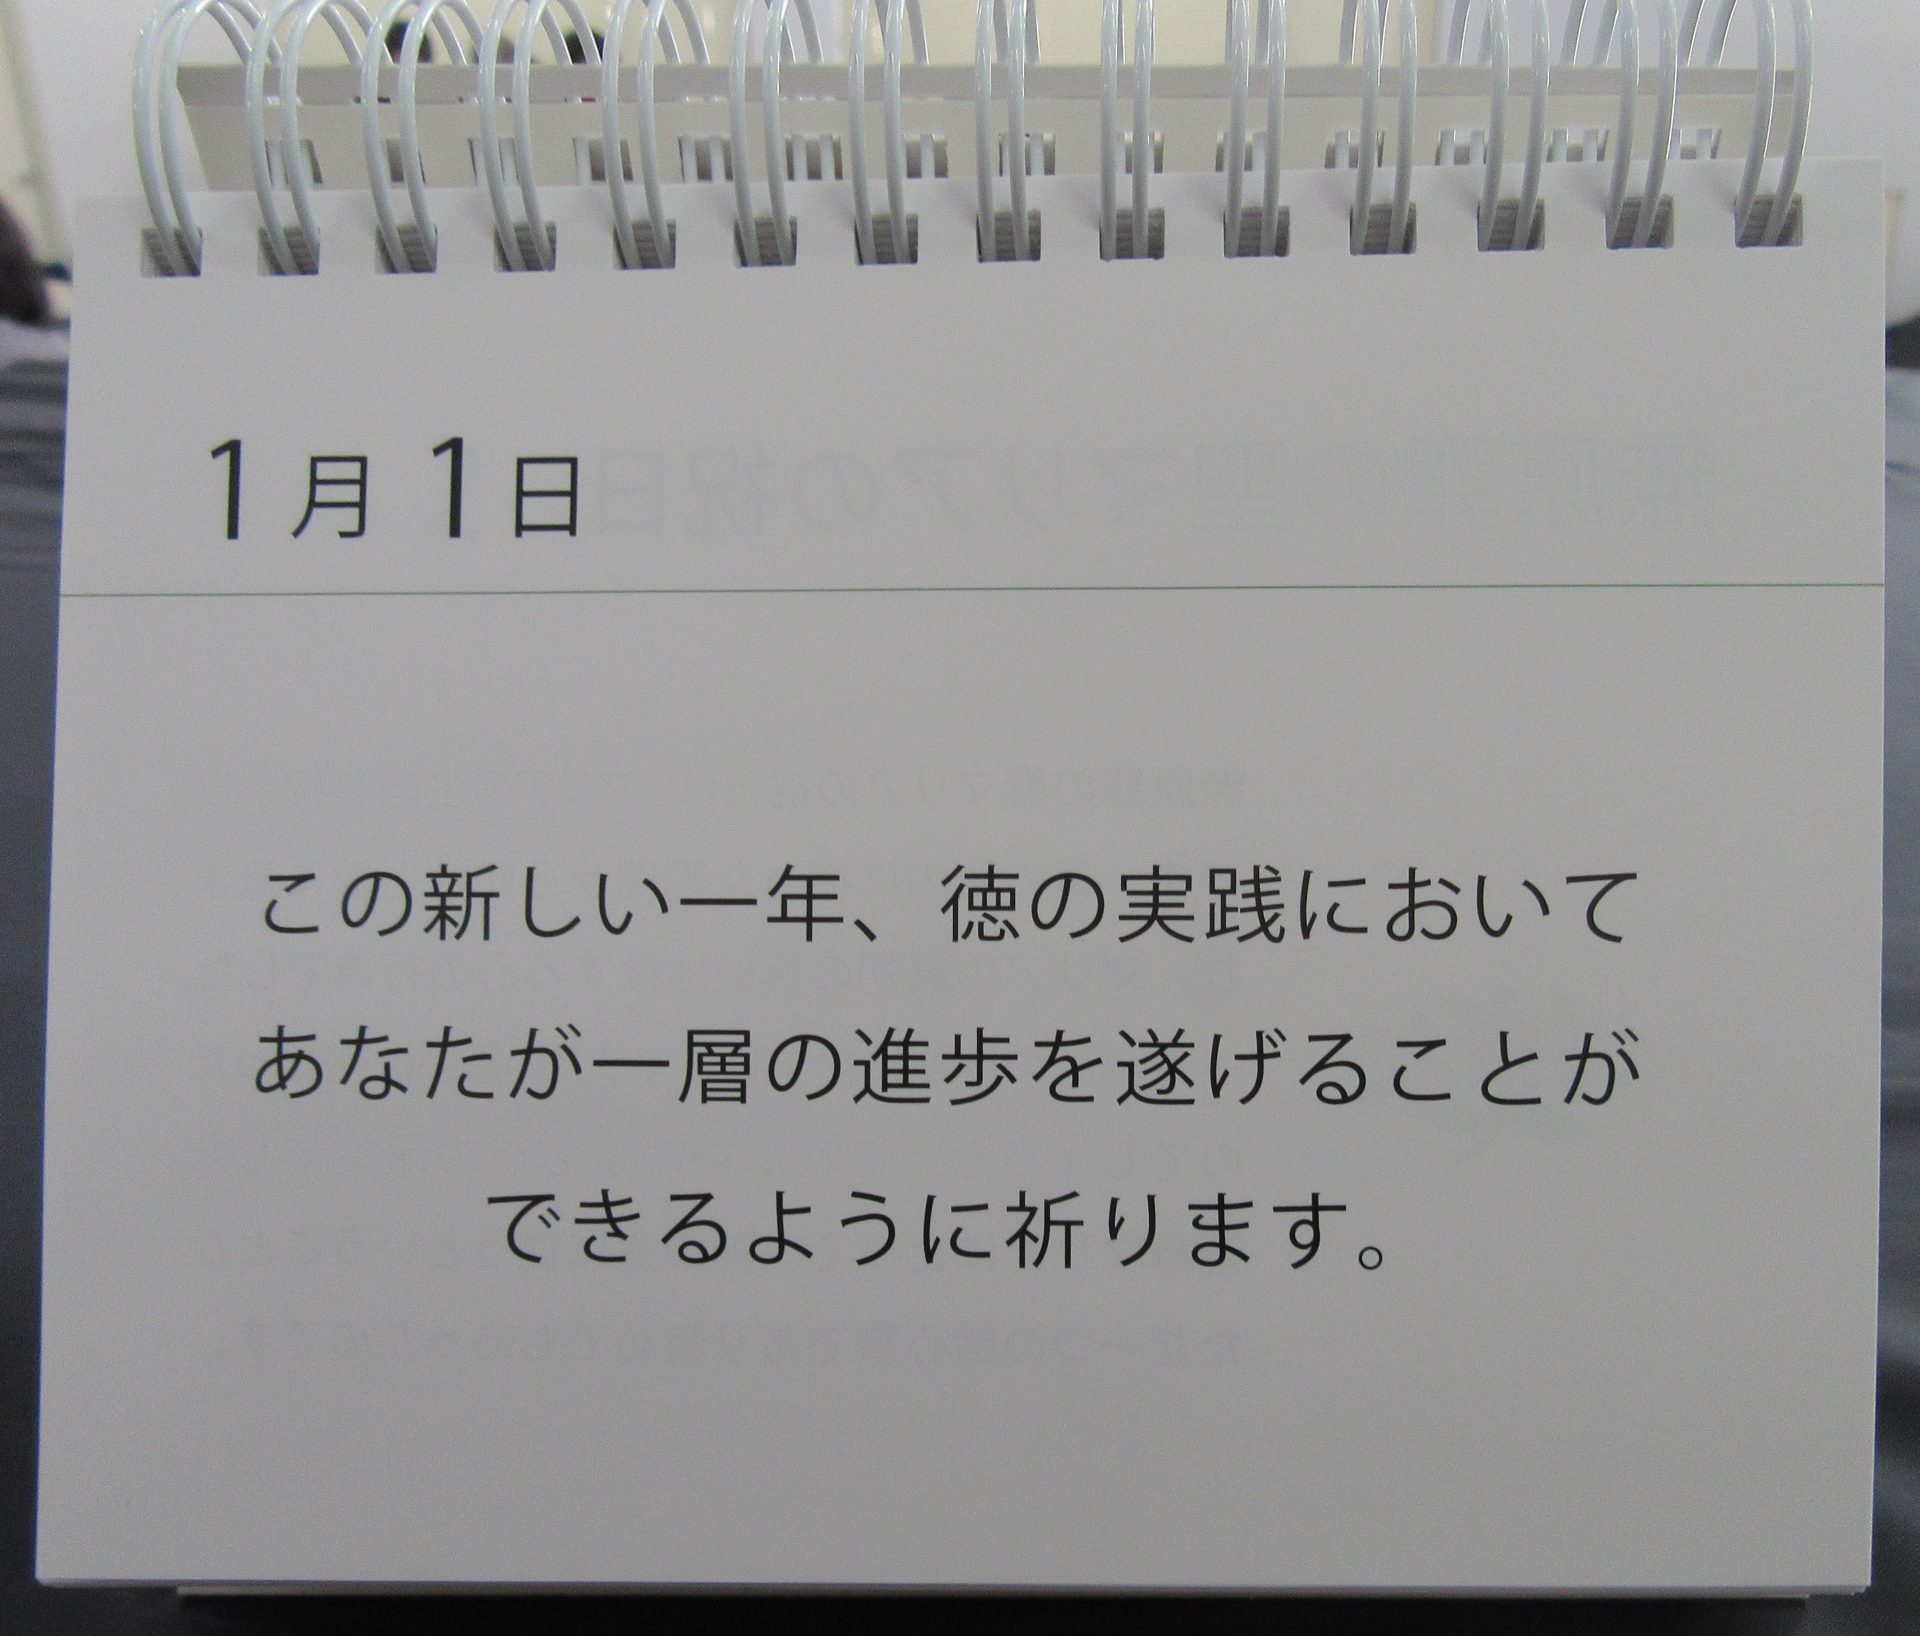 1月1日
この新しい一年、徳の実践において
あなたが一層の進歩を遂げることが
できるように祈ります。